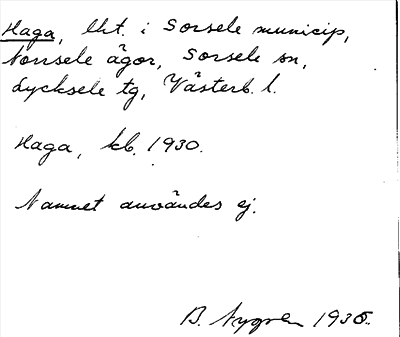 Haga, lht. i Sorsele municip,
Norrsele ägor, Sorsele sn,
Lycksele tg, Västerb. l.
Haga, kb. 1930.
Namnet användes ej.
B. Nygren 1935.